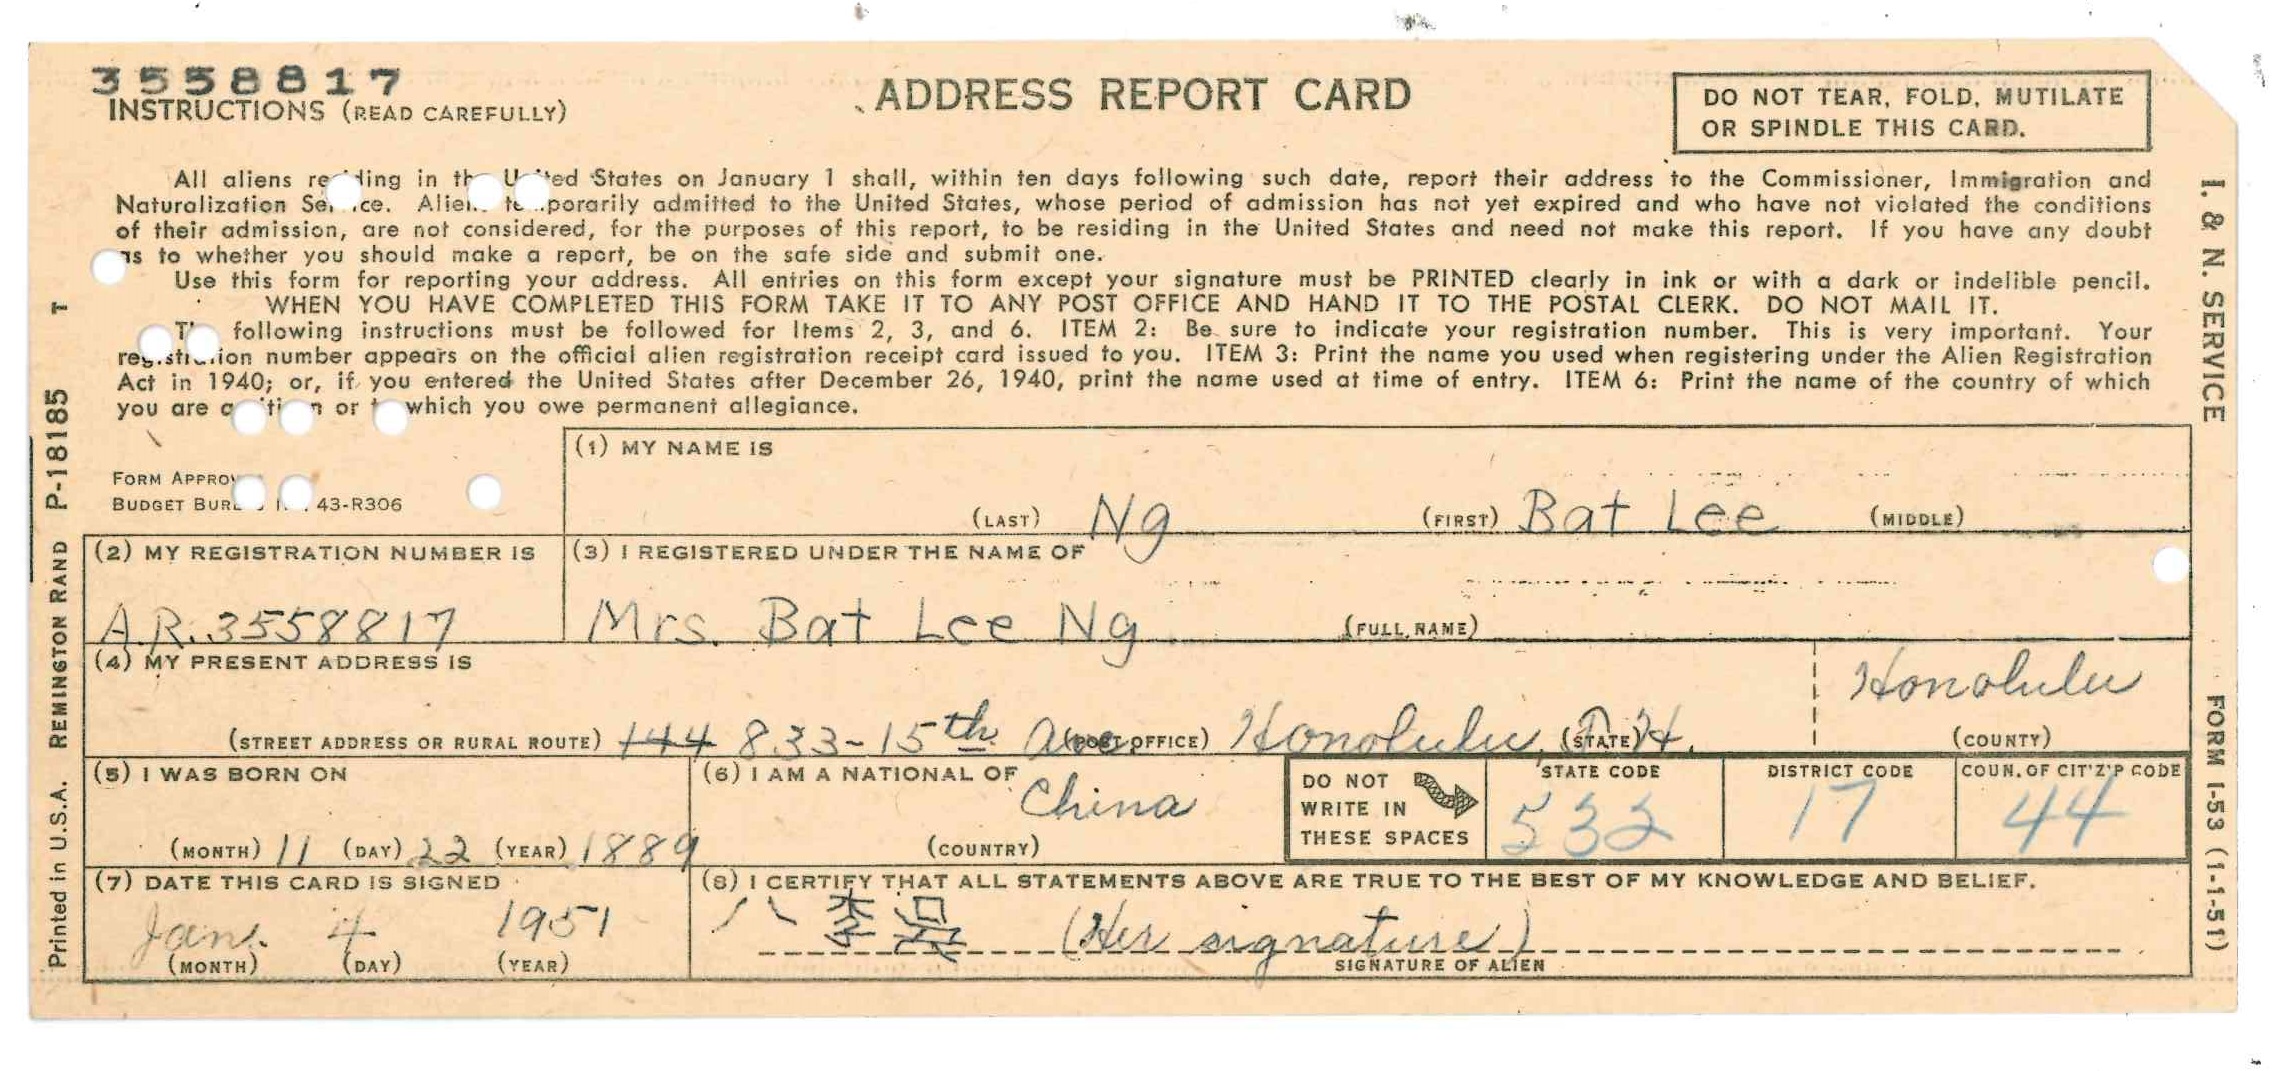 3558817
INSTRUCTIONS (READ CAREFULLY)
ADDRESS REPORT CARD
DO NOT TEAR, FOLD, MUTILATE
OR SPINDLE THIS CARD.
All aliens residing in the United States on January 1 shall, within ten days following such date, report their address to the Commissioner, Immigration and
Naturalization Service. Aliens temporarily admitted to the United States, whose period of admission has not yet expired and who have not violated the conditions
of their admission, are not considered, for the purposes of this report, to be residing in the United States and need not make this report. If you have any doubt
as to whether you should make a report, be on the safe side and submit one.
Use this form for reporting your address. All entries on this form except your signature must be PRINTED clearly in ink or with a dark or indelible pencil.
WHEN YOU HAVE COMPLETED THIS FORM TAKE IT TO ANY POST OFFICE AND HAND IT TO THE POSTAL CLERK. DO NOT MAIL IT.
The following instructions must be followed for Items 2, 3, and 6. ITEM 2: Be sure to indicate your registration number. This is very important. Your
registration number appears on the official alien registration receipt card issued to you. ITEM 3: Print the name you used when registering under the Alien Registration
Act in 1940; or, if you entered the United States after December 26, 1940, print the name used at time of entry. ITEM 6: Print the name of the country of which
you are a citizen or to which you owe permanent allegiance.
FORM APPROVED
BUDGET BUREAU NO. 43-R306
(1) MY NAME IS
(LAST) Ng (FIRST) Bat Lee (MIDDLE)
(2) MY REGISTRATION NUMBER IS
A.R. 3558817
(3) I REGISTERED UNDER THE NAME OF
Mrs. Bat Lee Ng (FULL NAME)
(4) MY PRESENT ADDRESS IS
(STREET ADDRESS OR RURAL ROUTE) 144 833-15th Ave (POST OFFICE) Honolulu, (STATE) T.H.
Honolulu
(COUNTY)
(5) I WAS BORN ON
(MONTH) 11 (DAY) 22 (YEAR) 1889
(6) I AM A NATIONAL OF
China
(COUNTRY)
DO NOT
WRITE IN
THESE SPACES
STATE CODE
532
DISTRICT CODE
17
COUN. OF CIT'Z'P CODE
44
(7) DATE THIS CARD IS SIGNED
Jan. 4 1951
(MONTH) (DAY) (YEAR)
(8) I CERTIFY THAT ALL STATEMENTS ABOVE ARE TRUE TO THE BEST OF MY KNOWLEDGE AND BELIEF.
八 李吳 (Her signature)
SIGNATURE OF ALIEN
Printed in U.S.A. REMINGTON RAND P-18185 T
I. & N. SERVICE
FORM I-53 (1-1-51)